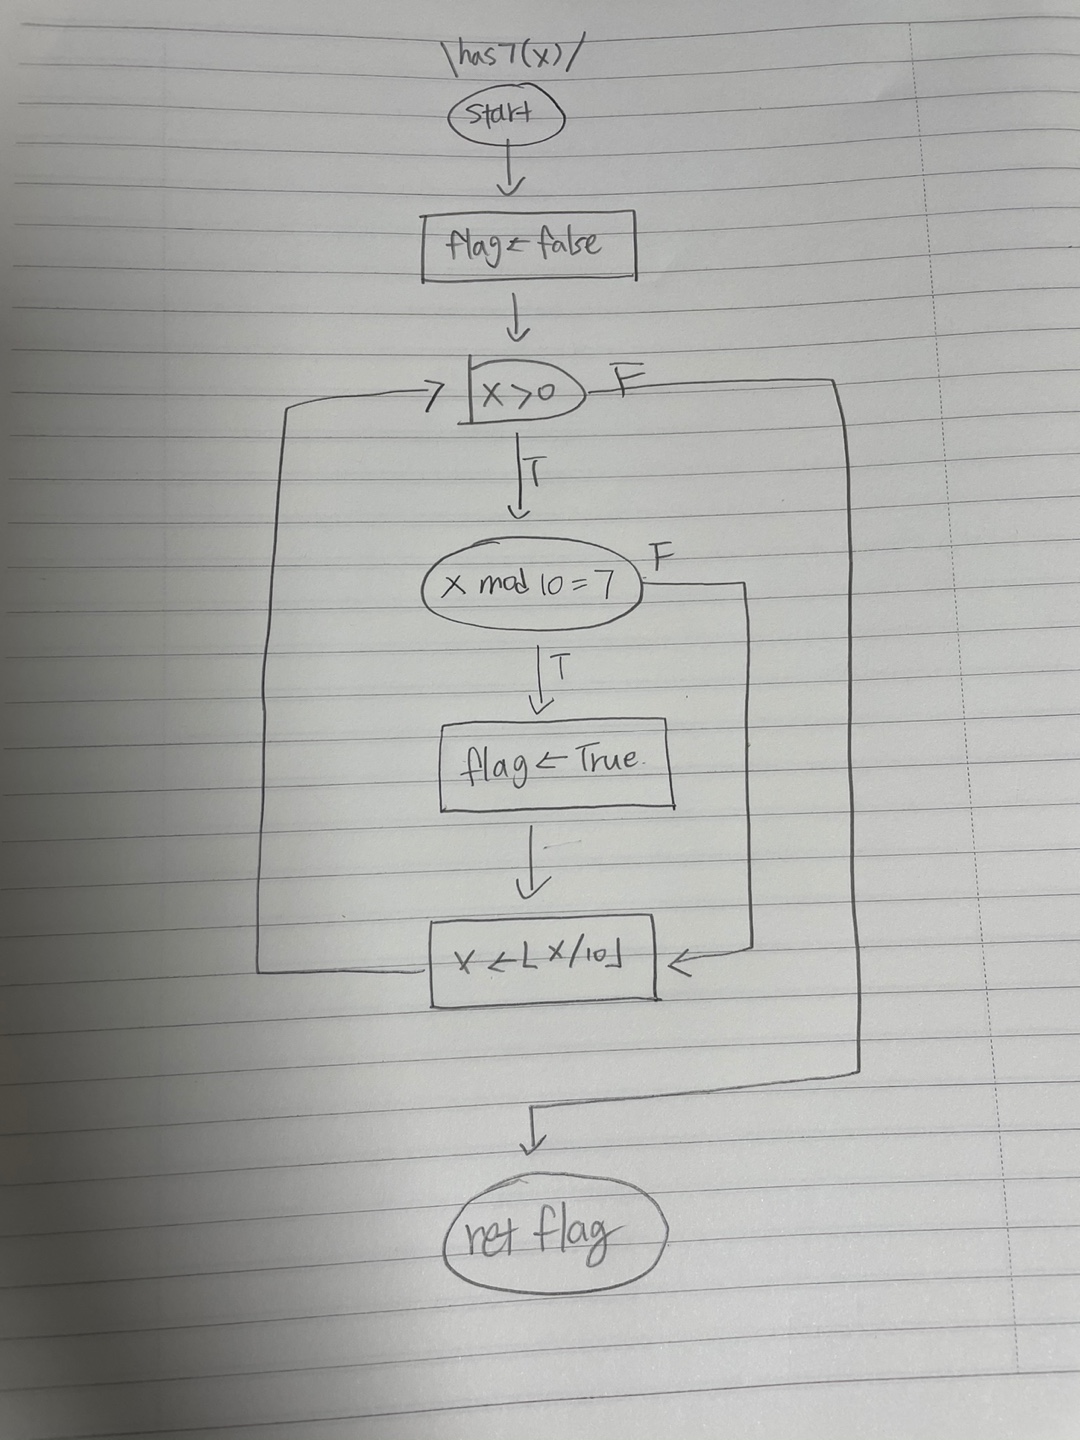 \has7(x)/
start
flag ← false
x > 0
F
T
x mod 10 = 7
F
T
flag ← True.
x ← ⌊x/10⌋
ret flag